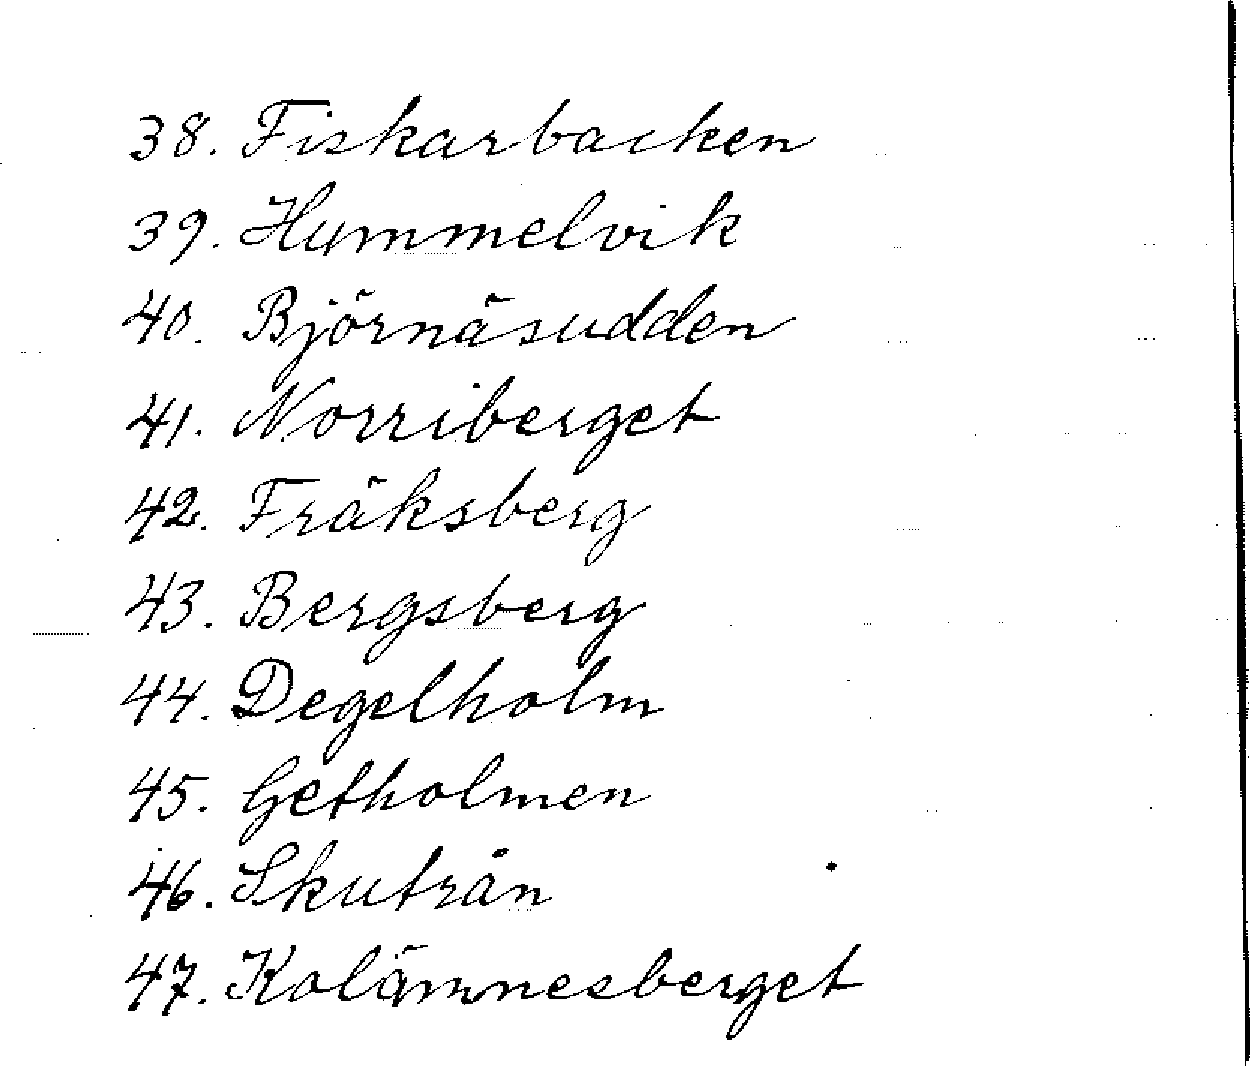 38. Fiskarbacken
39. Hummelvik
40. Björnäsudden
41. Norriberget
42. Fräksberg
43. Bergsberg
44. Degelholm
45. Getholmen
46. Skutrån
47. Kolämnesberget